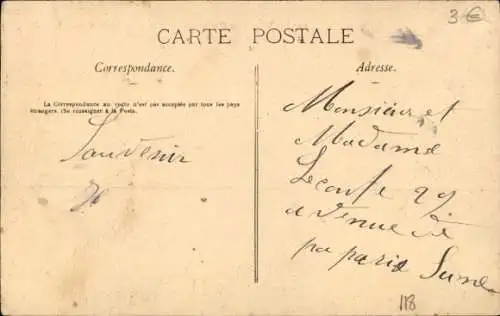 3€
CARTE POSTALE
Correspondance.
Adresse.
La Correspondance au recto n'est pas acceptée par tous les pays
étrangers. (Se renseigner à la Poste.
Souvenir
Monsieur et
Madame
Lecomte 29
avenue
par paris
118